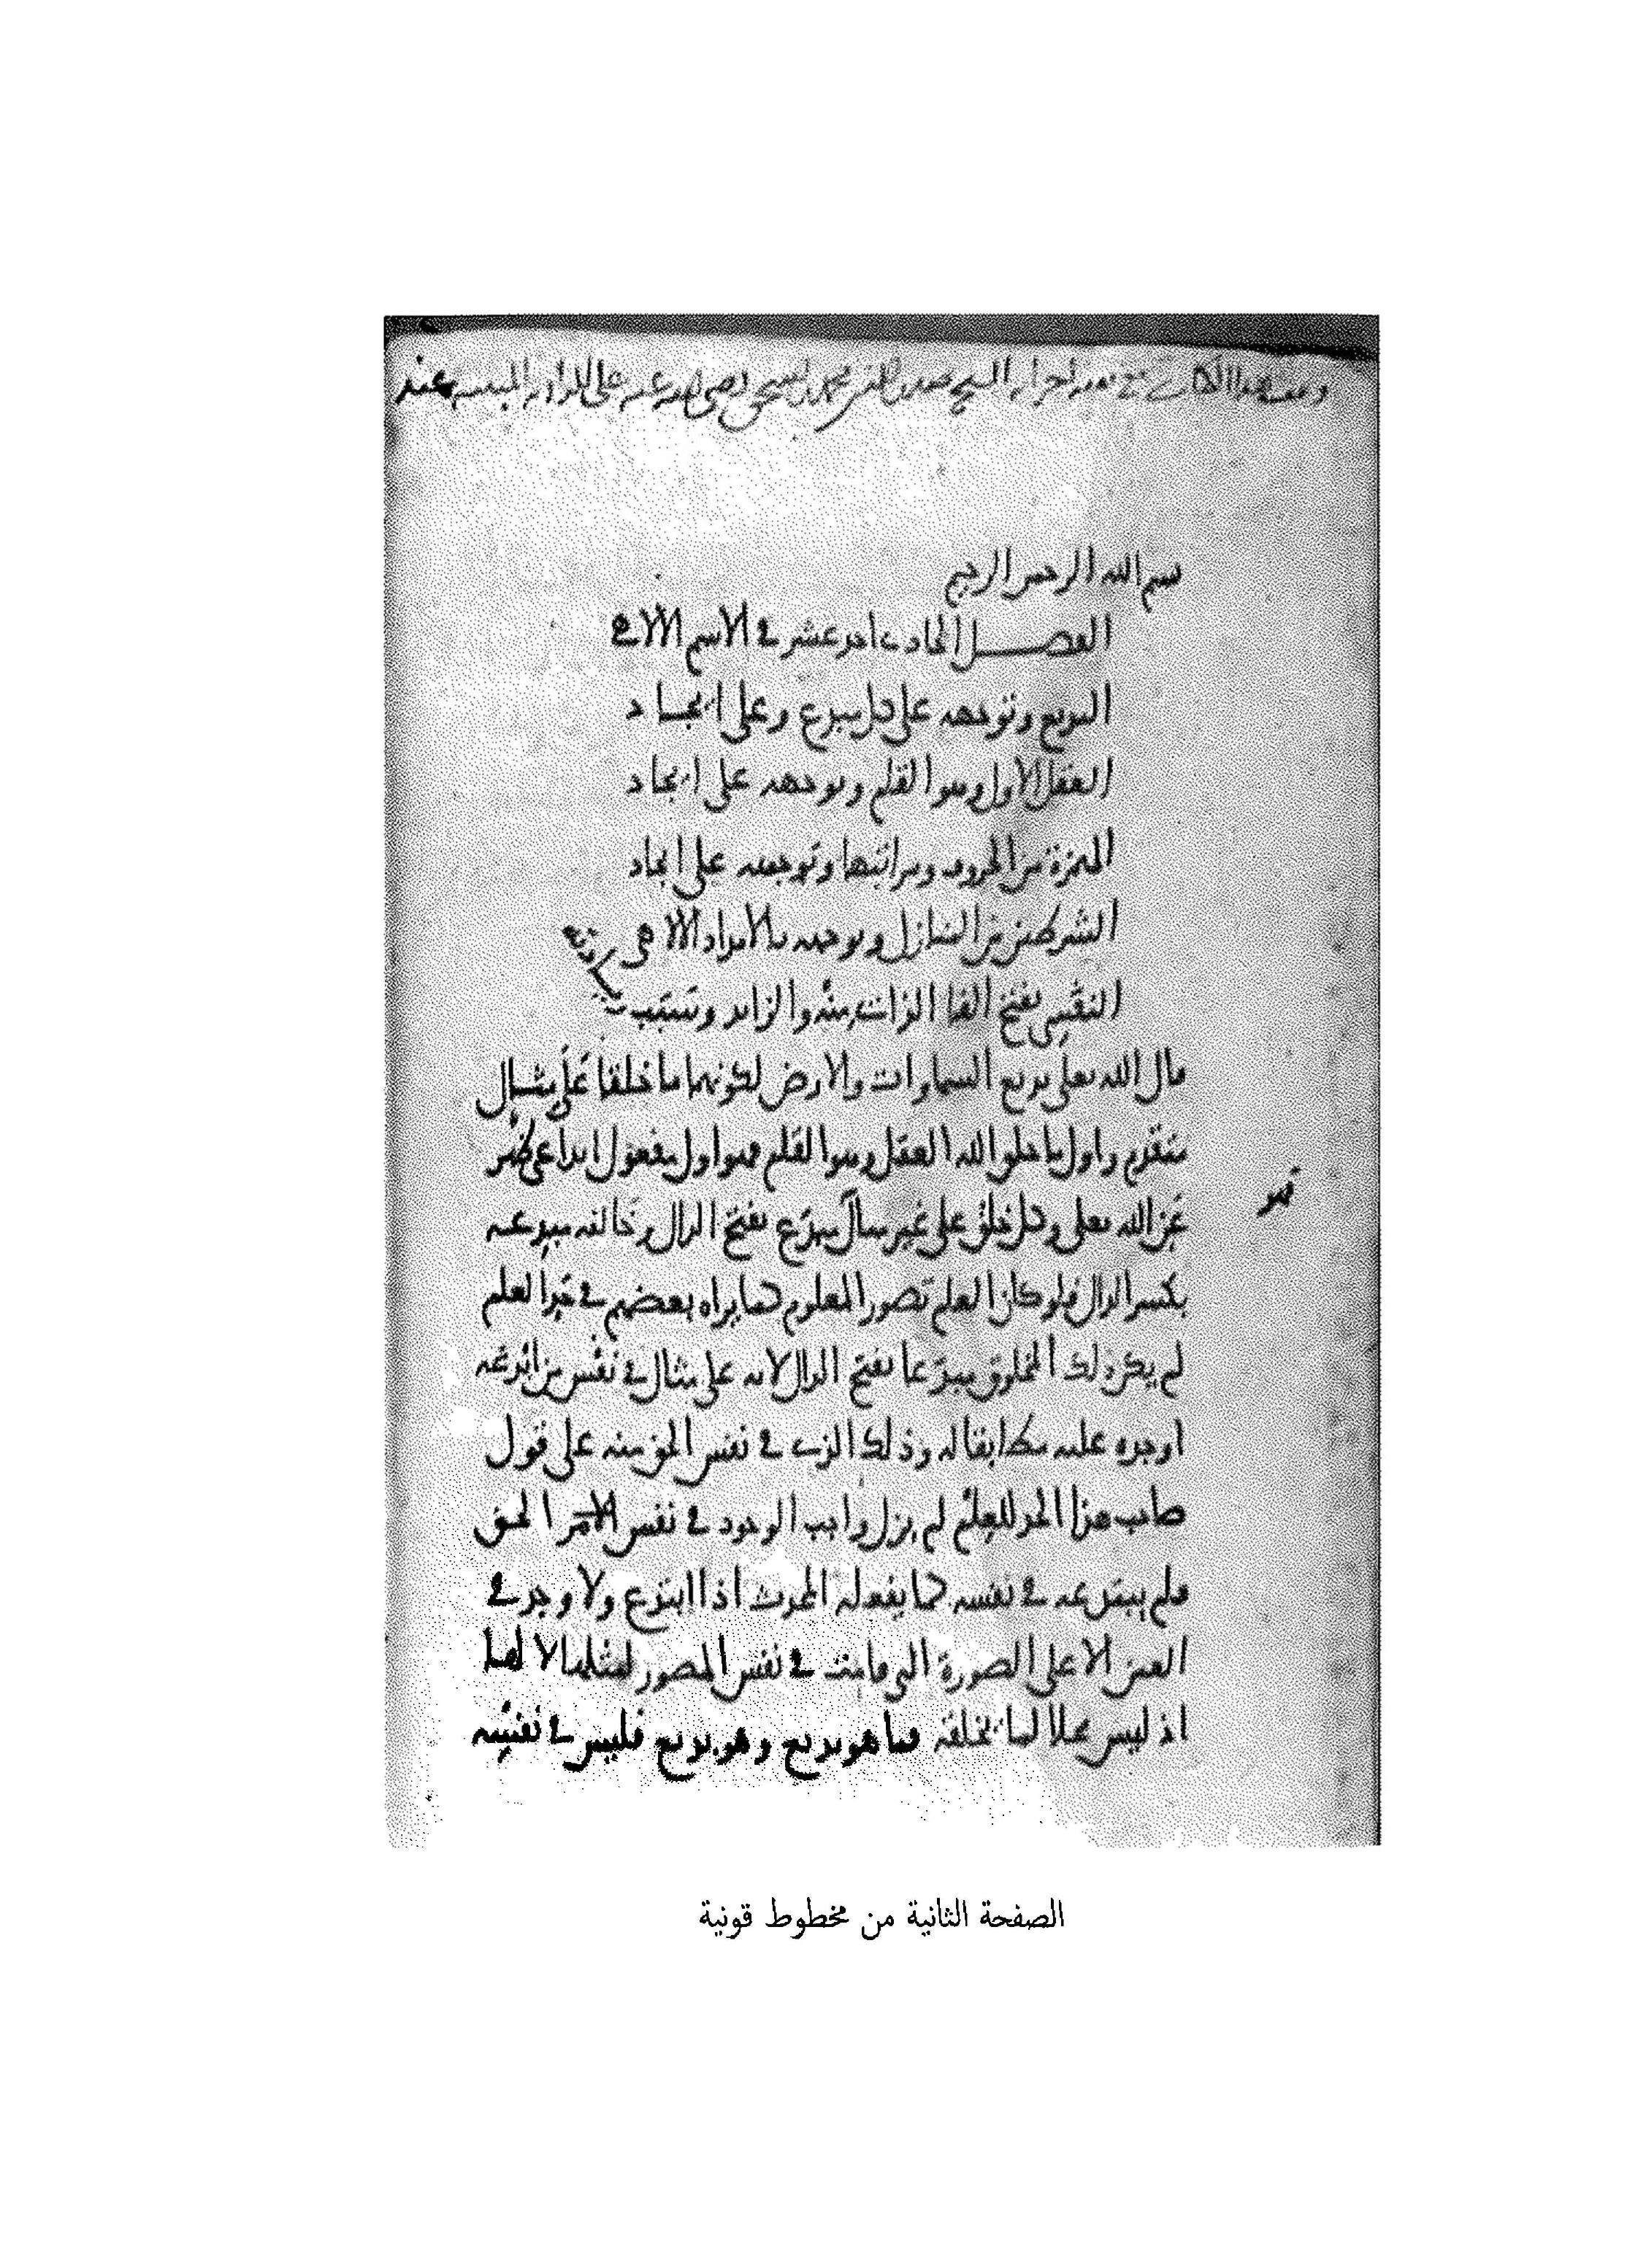 وقف هذا الكتاب الشيخ صدر الدين محمد بن اسحق رضي الله عنه على عند
بسم الله الرحمن الرحيم
الفصل الحادي احد عشر في الاسم الالاهي
البديع وتوجهه على كل مبدع وعلى ايجاد
العقل الاول وهو القلم وتوجهه على ايجاد
الهمزة من الحروف ومراتبها وتوجهه على ايجاد
الشرطين من المنازل وتوجهه بالامداد الالاهي
النفسي بفتح الفا الذاتي منه والزايد وسبب
زيادته
قال الله تعلى بديع السماوات والارض لكونهما ما خلقا على مثال
متقدم واول ما خلق الله العقل وهو القلم فهو اول مفعول ابداعي ظهر
عن الله تعلى وكل خلق على غير مثال مبدع بفتح الدال وخالقه مبدعه
بكسر الدال فلو كان العلم تصور المعلوم كما يراه بعضهم في حد العلم
لم يكن ذلك المخلوق مبدعا بفتح الدال لانه على مثال في نفس من ابدعه
اوجده عليه مطابقا له وذلك الذي في نفس الحق منه على قول
صاحب هذا الحد للعلم لم يزل واجب الوجود في نفس الحق
فلم يبتدعه في نفسه كما يفعله المحدث اذا ابتدع ولا وجد في
العين الا على الصورة التي قامت في نفس المصور لمثلها لا لها
اذ ليس محلا لما يخلقه فما هو بديع وهو بديع فليس في نفسه
الصفحة الثانية من مخطوط قونية